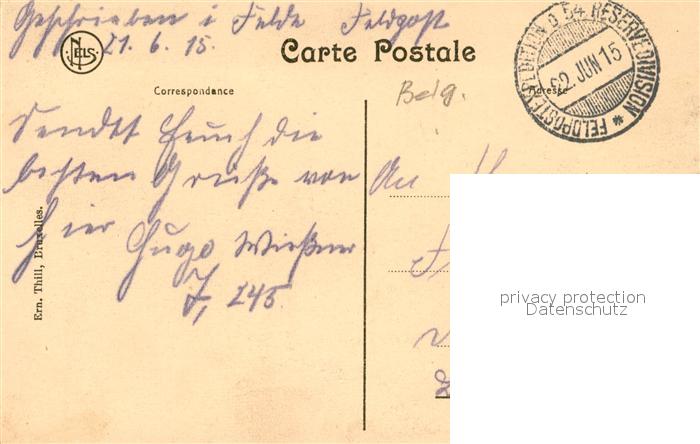 Geschrieben i Felde Feldpost
21. 6. 15.
NELS
Carte Postale
FELDPOSTEXPEDITION d 54 RESERVEDIVISION *
22. JUN 15
Correspondance
Adresse
Belg.
Sendet Euch die
besten Grüße von
hier Hugo
J, 245
An
Ern. Thill, Bruxelles.
privacy protection
Datenschutz